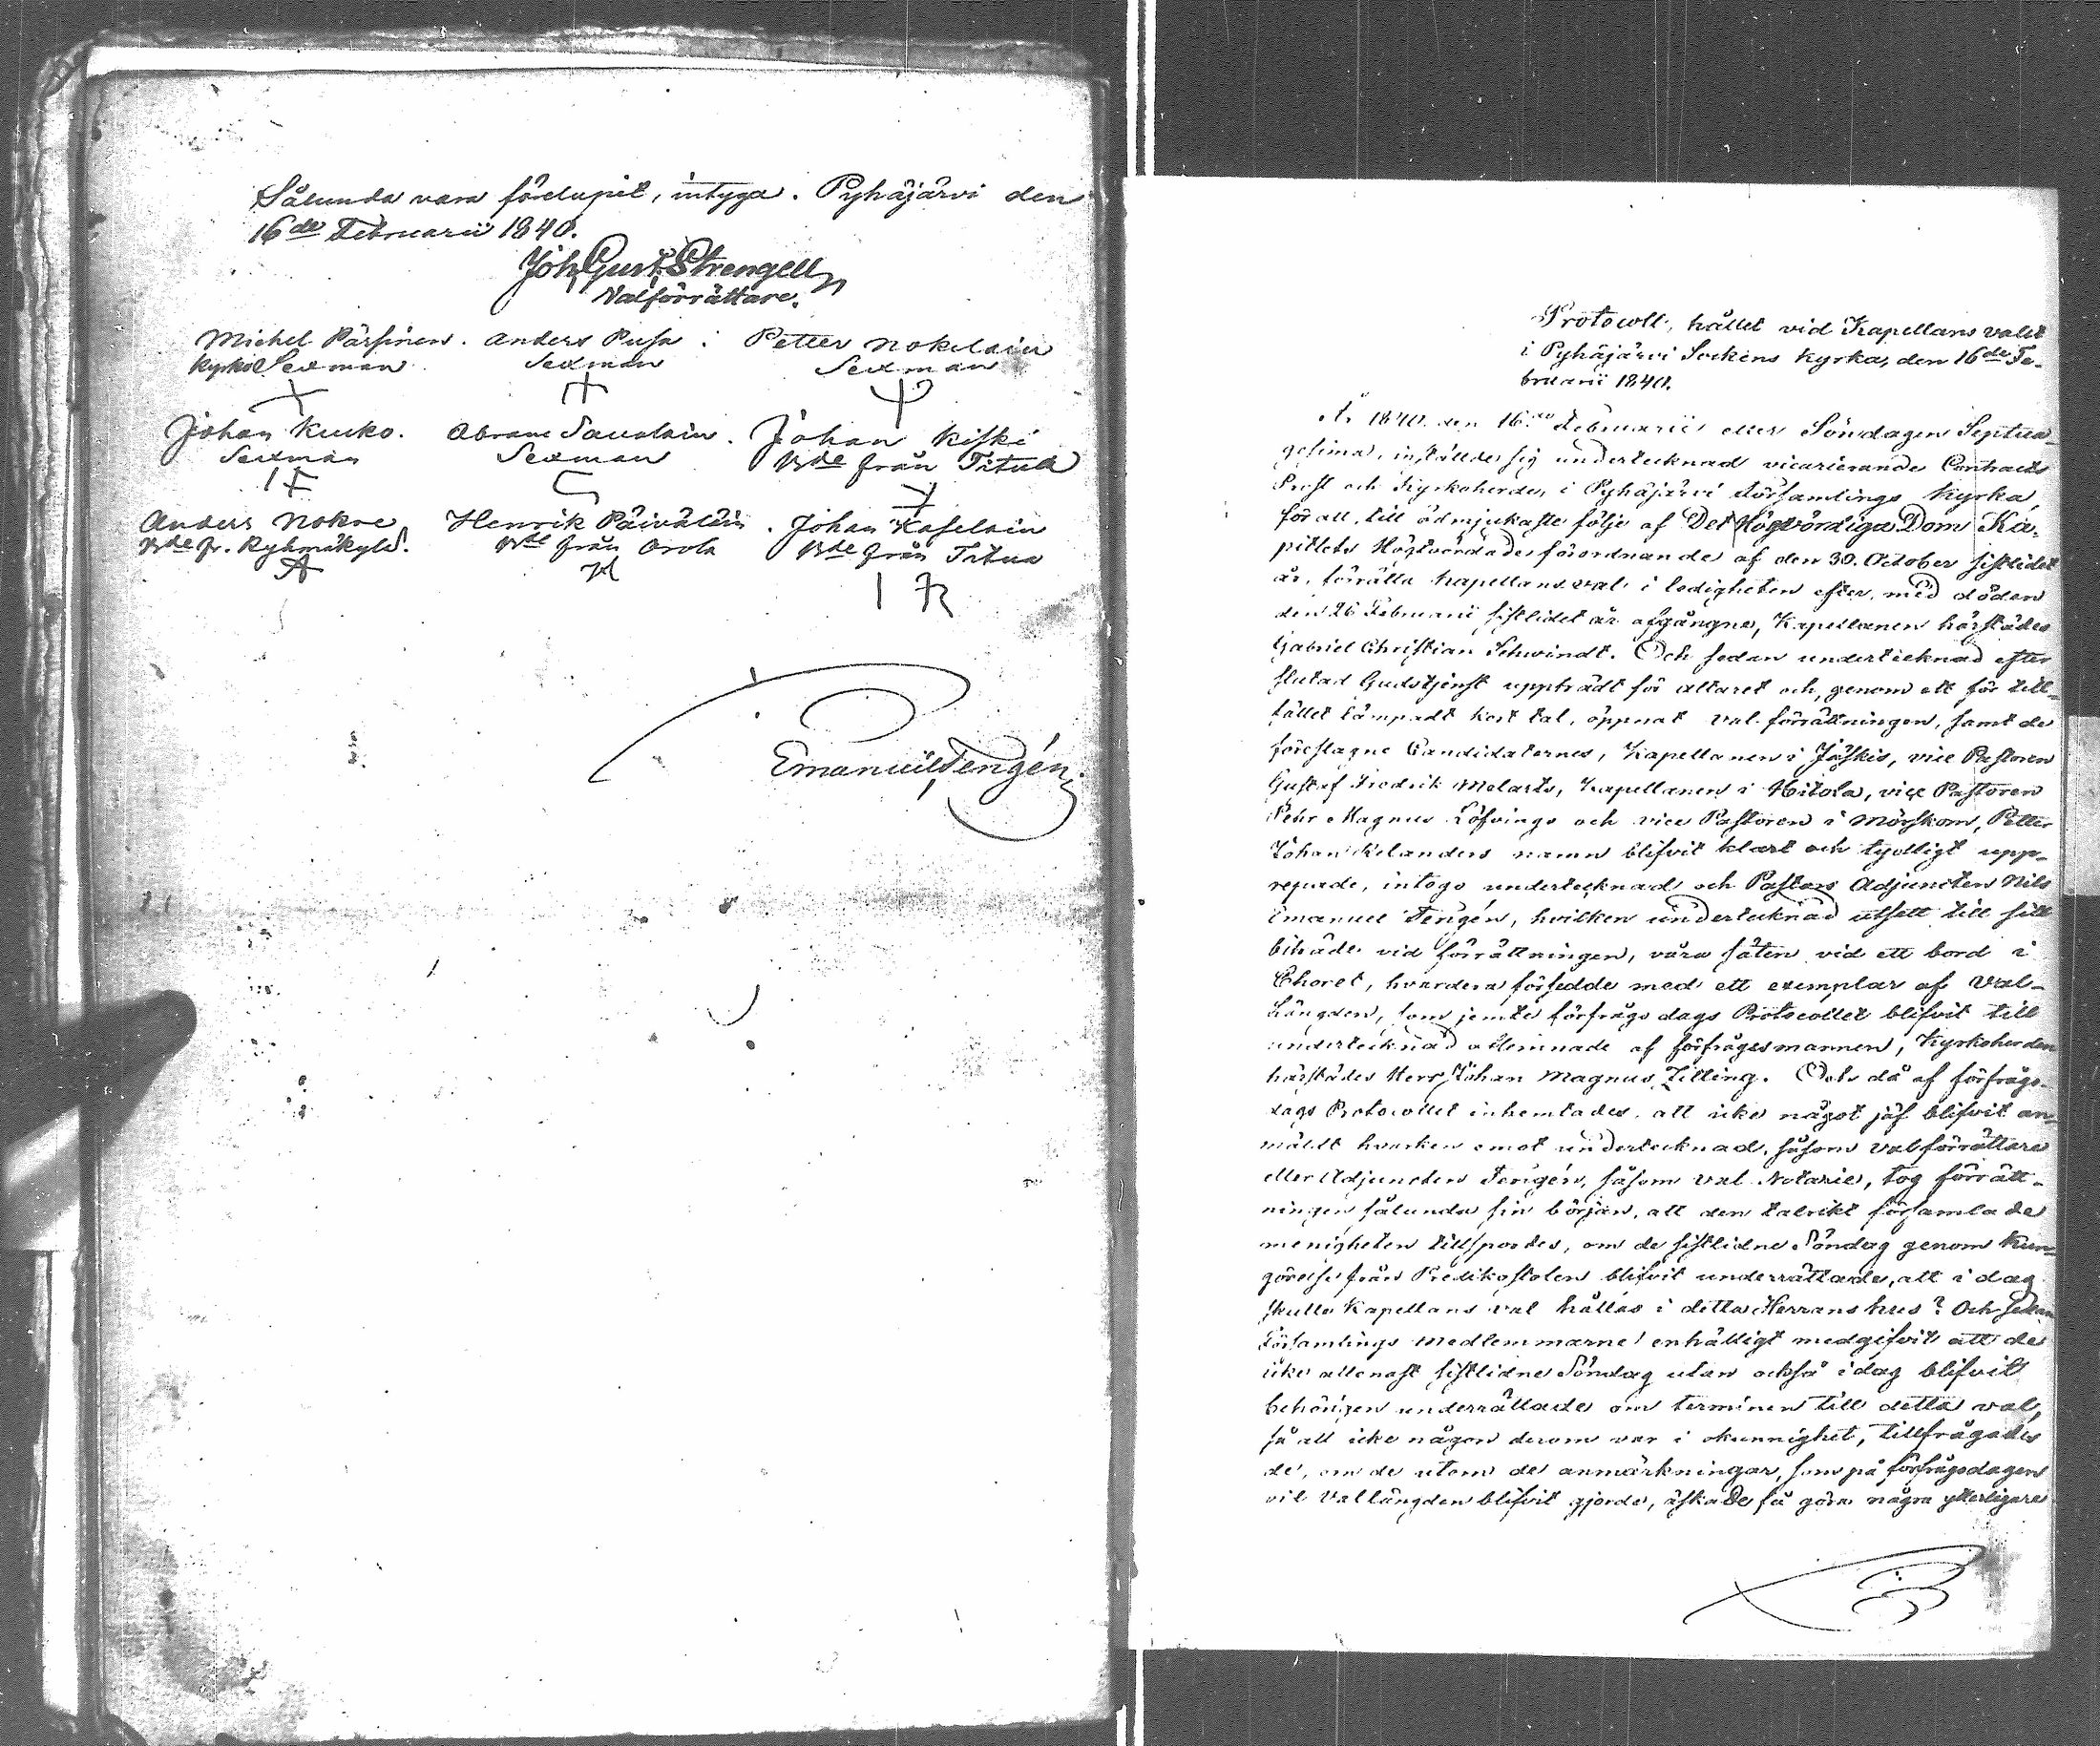 Sålunda vara förelupit, intyga. Pyhäjärvi den
16de Februarii 1840.
Joh. Gust. Strengell
Valförrättare.
Michel Pärssinen. Anders Pusa. Petter Nokelain
Kyrko Sexman Sexman Sexman
Johan Kucko. Abram Savolain. Johan Kiski
Sexman Sexman Bde från Titua
Anders Nokre Henrik Päiväläin. Johan Kaselain
Bde fr. Ryhmäkylä. Bde från Orola Bde från Titua
Emanuel Tengén
Protocoll, hållet vid Kapellans valet
i Pyhäjärvi Sockens Kyrka, den 16de Fe-
bruarii 1840.
År 1840 den 16de Februarii eller Söndagen Septua-
gesima, inställde sig undertecknad vicarierande Contracts
Prost och Kyrkoherde, i Pyhäjärvi Församlings Kyrka
för att, till ödmjukaste följe af Det Högvördiga Dom Ka-
pitlets Högtvördade förordnande af den 30. October sistlidet
år, förrätta Kapellans val i ledigheten efter, med döden
den 26 Februarii sistlidet år afgångne, Kapellanen härstädes
Gabriel Christian Schwindt. Och sedan undertecknad efter
slutad Gudstjenst uppträdt för altaret och, genom ett för till-
fället lämpadt kort tal, öppnat val förrättningen, samt de
föreslagne Candidaternes, Kapellanen i Jäskis, vice Pastoren
Gustaf Fredrik Melarts, Kapellanen i Hitola, vice Pastoren
Pehr Magnus Löfvings och vice Pastoren i Mörskom, Petter
Johan Kelanders namn blifvit klart och tydligt upp-
repade, intogo undertecknad och Pastors Adjuncten Nils
Emanuel Tengén, hvilken undertecknad utsett till sitt
biträde vid förrättningen, våra säten vid ett bord i
Choret, hvardera försedde med ett exemplar af Val-
Längden, som jemte förfrågs dags Protocollet blifvit till
undertecknad aflemnade af förfrågesmannen, Kyrkoherden
härstädes Herr Johan Magnus Zilling. Och då af förfrågs-
dags Protocollet inhemtades, att icke något jäf blifvit an-
mäldt hvarken emot undertecknad, såsom valförrättare
eller Adjuncten Tengén, såsom val Notarie, tog förrätt-
ningen sålunda sin början, att den talrikt församlade
menigheten tillspordes, om de sistlidne Söndag genom kun-
görelse från Predikostolen blifvit underrättade, att i dag
skulle Kapellans val hållas i detta Herrans hus? Och sedan
Församlings medlemmarne enhälligt medgifvit att de
icke allenast sistlidne Söndag utan också idag blifvit
behörigen underrättade om terminen till detta val,
så att icke någon derom var i okunnighet, tillfrågades
de, om de utom de anmärkningar, som på förfrågsdagen
vid Vallängden blifvit gjorde, äskade få göra några ytterligare